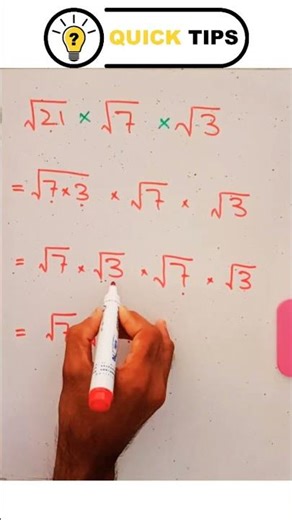 QUICK TIPS
√21 × √7 × √3
= √7×3 × √7 × √3
= √7 × √3 × √7 × √3
= √7